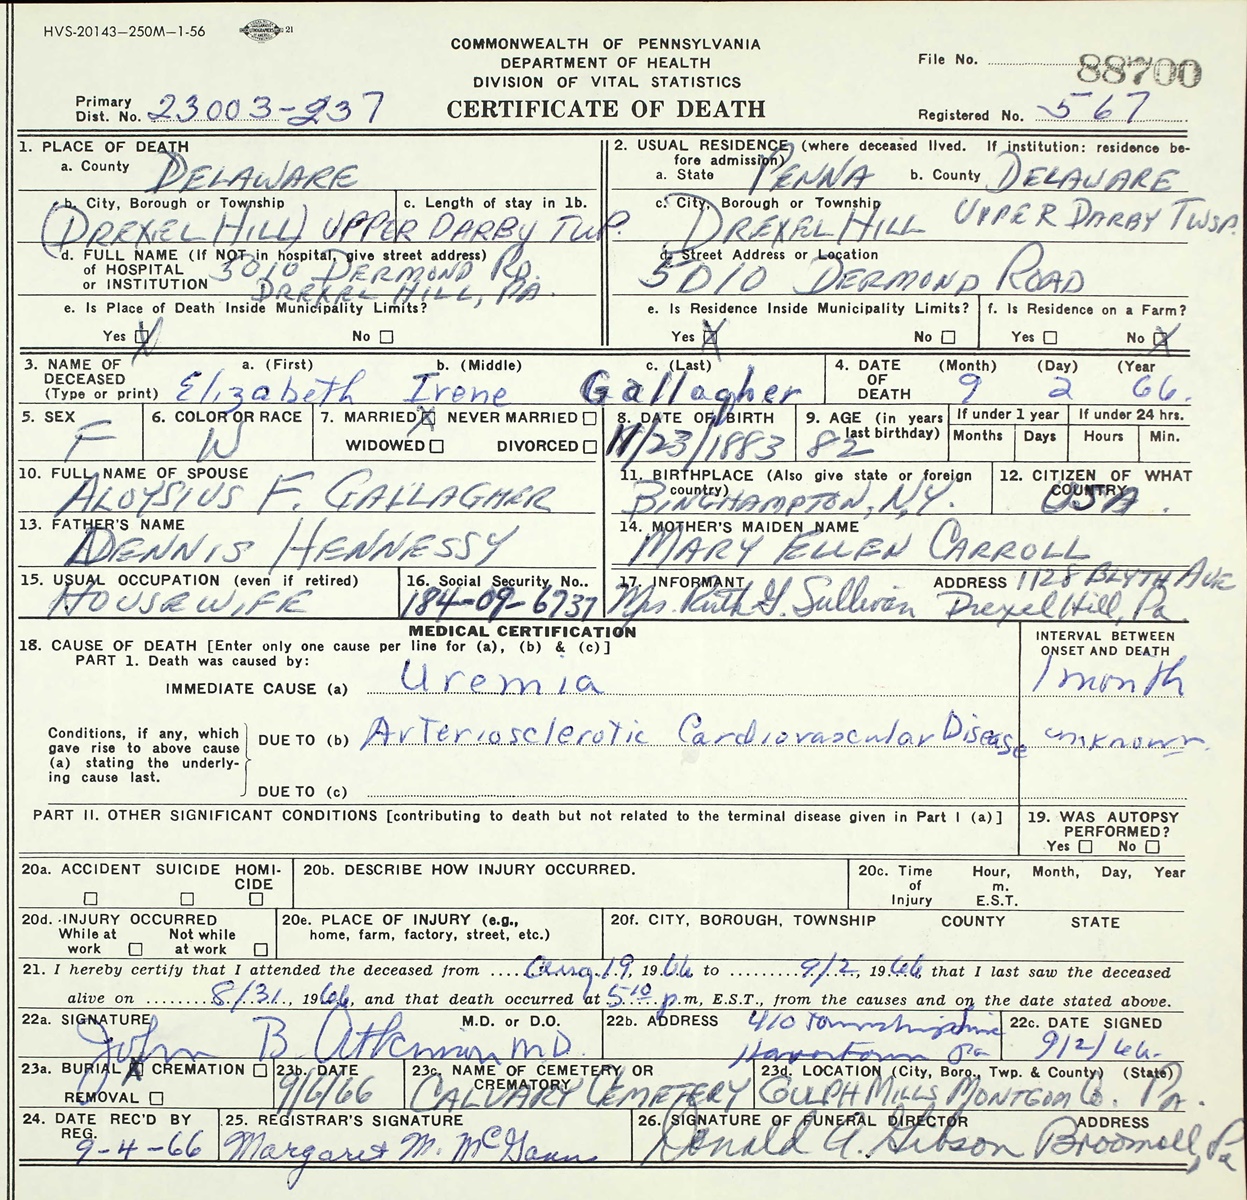 HVS-20143-250M-1-56 21
COMMONWEALTH OF PENNSYLVANIA
DEPARTMENT OF HEALTH
DIVISION OF VITAL STATISTICS
CERTIFICATE OF DEATH
File No. 88700
Primary Dist. No. 23003-237
Registered No. 567
1. PLACE OF DEATH
a. County DELAWARE
b. City, Borough or Township c. Length of stay in 1b.
(DREXEL HILL) UPPER DARBY TWP.
d. FULL NAME (If NOT in hospital, give street address)
of HOSPITAL or INSTITUTION 5010 DERMOND RD.
DREXEL HILL, PA.
e. Is Place of Death Inside Municipality Limits?
Yes X No
2. USUAL RESIDENCE (where deceased lived. If institution: residence be-
fore admission)
a. State PENNA b. County DELAWARE
c. City, Borough or Township
DREXEL HILL UPPER DARBY TWSP.
d. Street Address or Location
5010 DERMOND ROAD
e. Is Residence Inside Municipality Limits? f. Is Residence on a Farm?
Yes X No Yes No X
3. NAME OF DECEASED (Type or print) a. (First) b. (Middle) c. (Last)
Elizabeth Irene Gallagher
4. DATE OF DEATH (Month) (Day) (Year
9 2 66.
5. SEX F
6. COLOR OR RACE W
7. MARRIED X NEVER MARRIED
WIDOWED DIVORCED
8. DATE OF BIRTH 11/23/1883
9. AGE (in years last birthday) 82
If under 1 year If under 24 hrs.
Months Days Hours Min.
10. FULL NAME OF SPOUSE
ALOYSIUS F. GALLAGHER
11. BIRTHPLACE (Also give state or foreign country)
BINGHAMPTON, N.Y.
12. CITIZEN OF WHAT COUNTRY
USA.
13. FATHER'S NAME
DENNIS HENNESSY
14. MOTHER'S MAIDEN NAME
MARY ELLEN CARROLL
15. USUAL OCCUPATION (even if retired)
HOUSEWIFE
16. Social Security No..
184-09-6737
17. INFORMANT ADDRESS 1128 BLYTH AVE
Mrs. Ruth G. Sullivan Drexel Hill, Pa.
MEDICAL CERTIFICATION
18. CAUSE OF DEATH [Enter only one cause per line for (a), (b) & (c)]
PART 1. Death was caused by:
INTERVAL BETWEEN
ONSET AND DEATH
IMMEDIATE CAUSE (a) Uremia 1 month
Conditions, if any, which
gave rise to above cause
(a) stating the underly-
ing cause last.
DUE TO (b) Arteriosclerotic Cardiovascular Disease unknown.
DUE TO (c)
PART II. OTHER SIGNIFICANT CONDITIONS [contributing to death but not related to the terminal disease given in Part I (a)]
19. WAS AUTOPSY
PERFORMED?
Yes No
20a. ACCIDENT SUICIDE HOMI-
CIDE
20b. DESCRIBE HOW INJURY OCCURRED.
20c. Time of Injury Hour, m. E.S.T. Month, Day, Year
20d. INJURY OCCURRED
While at work Not while at work
20e. PLACE OF INJURY (e.g.,
home, farm, factory, street, etc.)
20f. CITY, BOROUGH, TOWNSHIP COUNTY STATE
21. I hereby certify that I attended the deceased from Aug. 19, 1966 to 9/2, 1966, that I last saw the deceased
alive on 8/31, 1966, and that death occurred at 5:10 p.m, E.S.T., from the causes and on the date stated above.
22a. SIGNATURE M.D. or D.O.
John B Atkinson M.D.
22b. ADDRESS 410 Township Line
Havertown Pa
22c. DATE SIGNED
9/2/66.
23a. BURIAL X CREMATION
REMOVAL
23b. DATE
9/6/66
23c. NAME OF CEMETERY OR CREMATORY
CALVARY CEMETERY
23d. LOCATION (City, Boro., Twp. & County) (State)
GULPH MILLS MONTGOM CO. PA.
24. DATE REC'D BY REG.
9-4-66
25. REGISTRAR'S SIGNATURE
Margaret M. McGann
26. SIGNATURE OF FUNERAL DIRECTOR ADDRESS
Donald A. Gibson Broomall, Pa